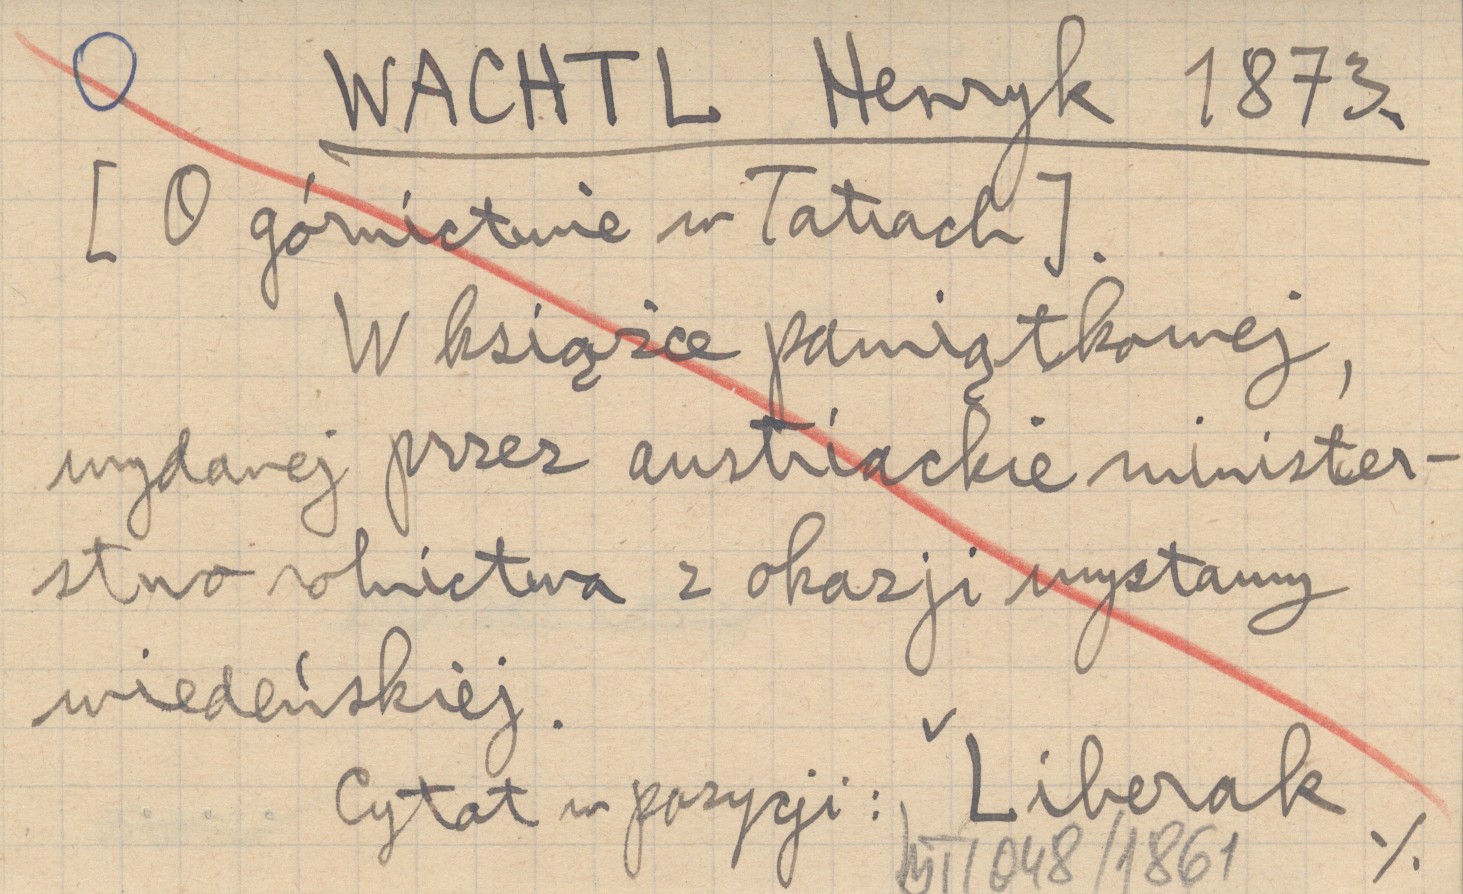 O WACHTL Henryk 1873.
[O górnictwie w Tatrach].
W książce pamiątkowej,
wydanej przez austriackie minister-
stwo rolnictwa z okazji wystawy
wiedeńskiej.
Cytat w pozycji: Liberak
048/1861 ./.